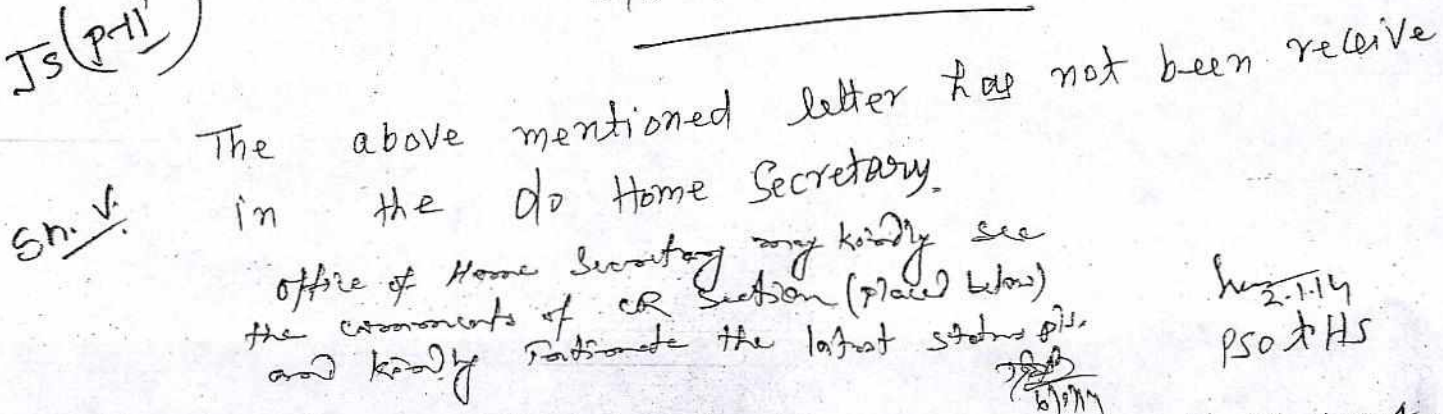 JS(P-II)
The above mentioned letter has not been receive
in the o/o Home Secretary.
Sh. V.
office of Home Secretary may kindly see
the comments of CR Section (placed below)
and kindly intimate the latest status pls.
2.1.14
PSO to HS